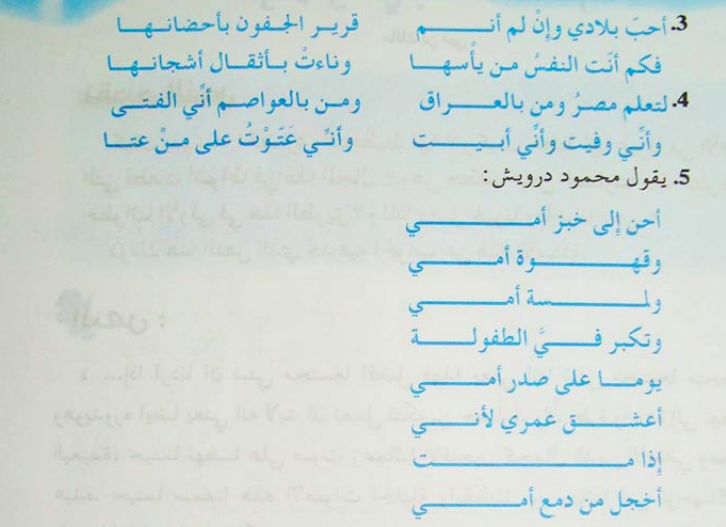 3. أحبّ بلادي وإنْ لم أنم قرير الجفون بأحضانها
فكم أنَت النفسُ من يأسها وناءتْ بأثقال أشجانها
4. لتعلم مصرُ ومن بالعراق ومن بالعواصم أني الفتى
وأنّي وفيت وأنّي أبيت وأنّي عَتَوْتُ على منْ عتا
5. يقول محمود درويش:
أحن إلى خبز أمي
وقهوة أمي
ولمسة أمي
وتكبر فيَّ الطفولة
يوما على صدر أمي
أعشق عمري لأني
إذا مت
أخجل من دمع أمي